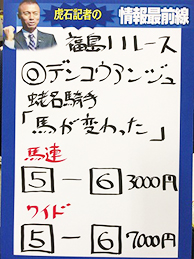 虎石記者の
情報最前線
福島11レース
◎デンコウアンジュ
蛯名騎手
「馬が変わった」
馬連
5-6 3000円
ワイド
5-6 7000円